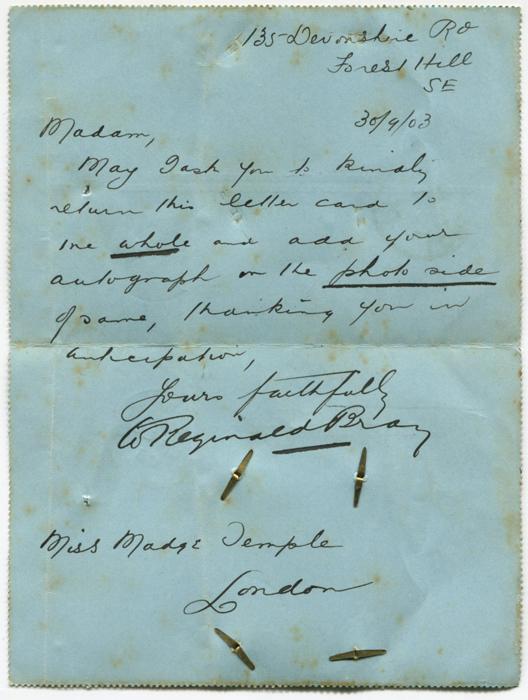 135 Devonshire Rd
Forest Hill
SE
30/9/03
Madam,
May I ask you to kindly
return this letter card to
me whole and add your
autograph on the photo side
of same, thanking you in
anticipation,
Yours faithfully
W Reginald Bray
Miss Madge Temple
London